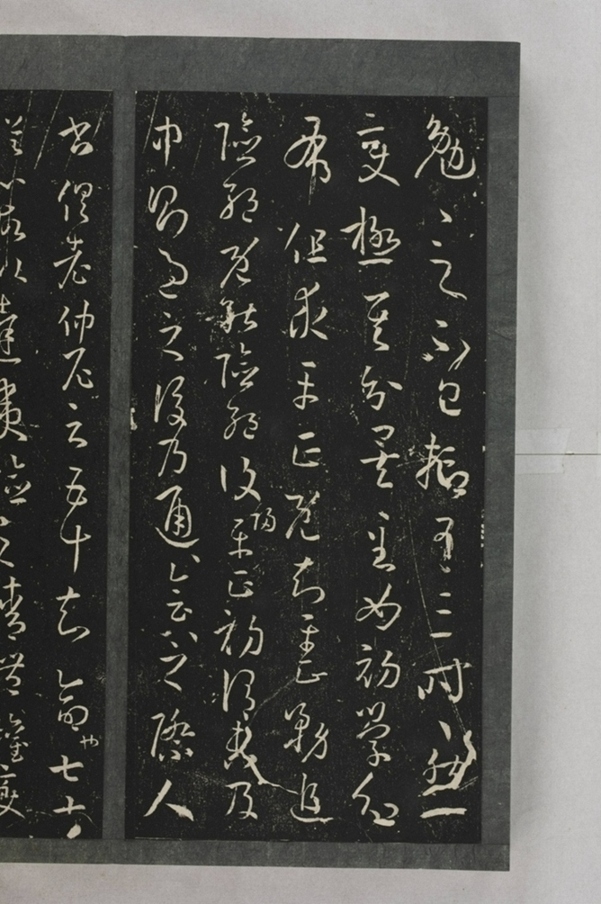 勉〻之不已抑有三時〻然一
變極其分矣至如初學分
布但求平正既知平正務追
險絕既能險絕復歸平正初謂未及
中則過之後乃通〻會〻之際人
書俱老仲尼云五十知命也七十
從心故以達夷險之情體權變